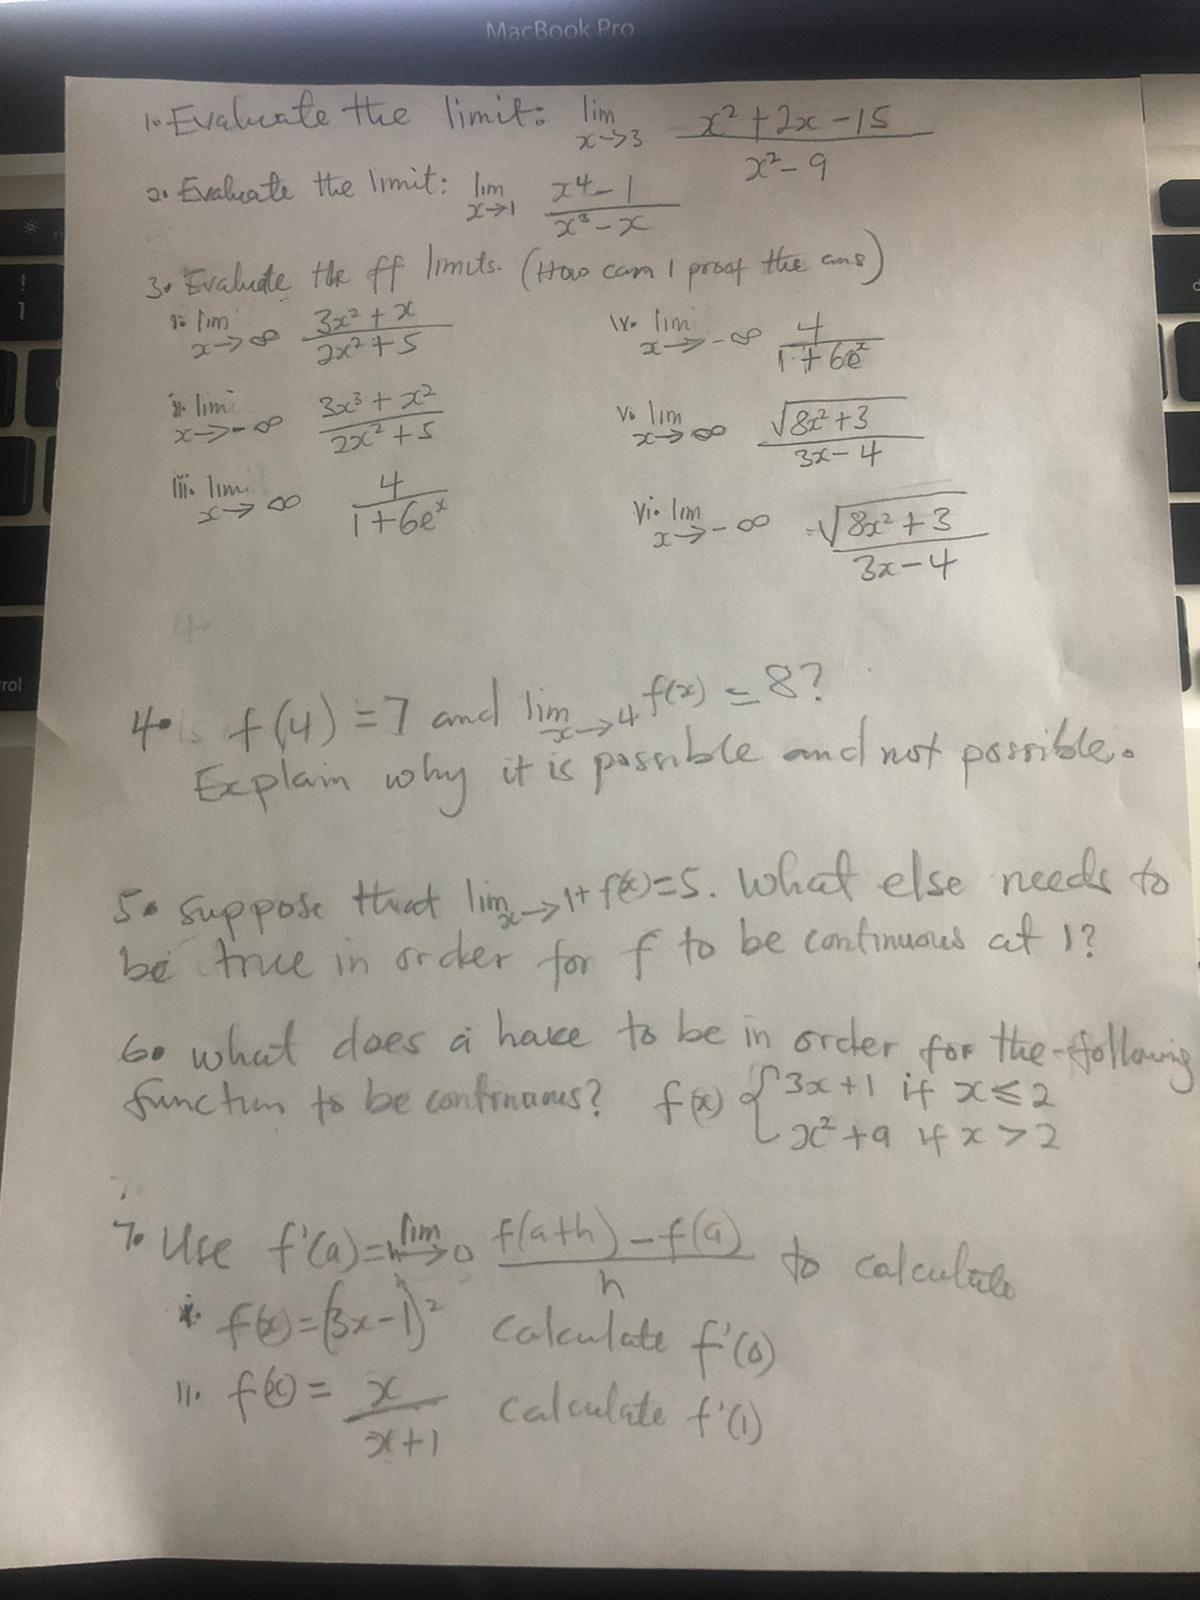 MacBook Pro
1. Evaluate the limit: lim x→3 x² + 2x - 15 / x² - 9
2. Evaluate the limit: lim x→1 x4 - 1 / x³ - x
3. Evaluate the ff limits. (How can I proof the ans)
i. lim x→∞ 3x² + x / 2x² + 5
ii. lim x→-∞ 3x³ + x² / 2x² + 5
iii. lim x→∞ 4 / 1 + 6eˣ
iv. lim x→-∞ 4 / 1 + 6eˣ
v. lim x→∞ √8x² + 3 / 3x - 4
vi. lim x→-∞ √8x² + 3 / 3x - 4
4. Is f(4) = 7 and lim x→4 f(x) = 8?
Explain why it is possible and not possible.
5. suppose that lim x→1+ f(x) = 5. What else needs to
be true in order for f to be continuous at 1?
6. what does a have to be in order for the following
function to be continuous? f(x) { 3x + 1 if x ≤ 2
x² + a if x > 2
7. Use f'(a) = lim h→0 f(a+h) - f(a) / h to calculate
i. f(x) = (3x - 1)² calculate f'(0)
ii. f(x) = x / x + 1 calculate f'(1)